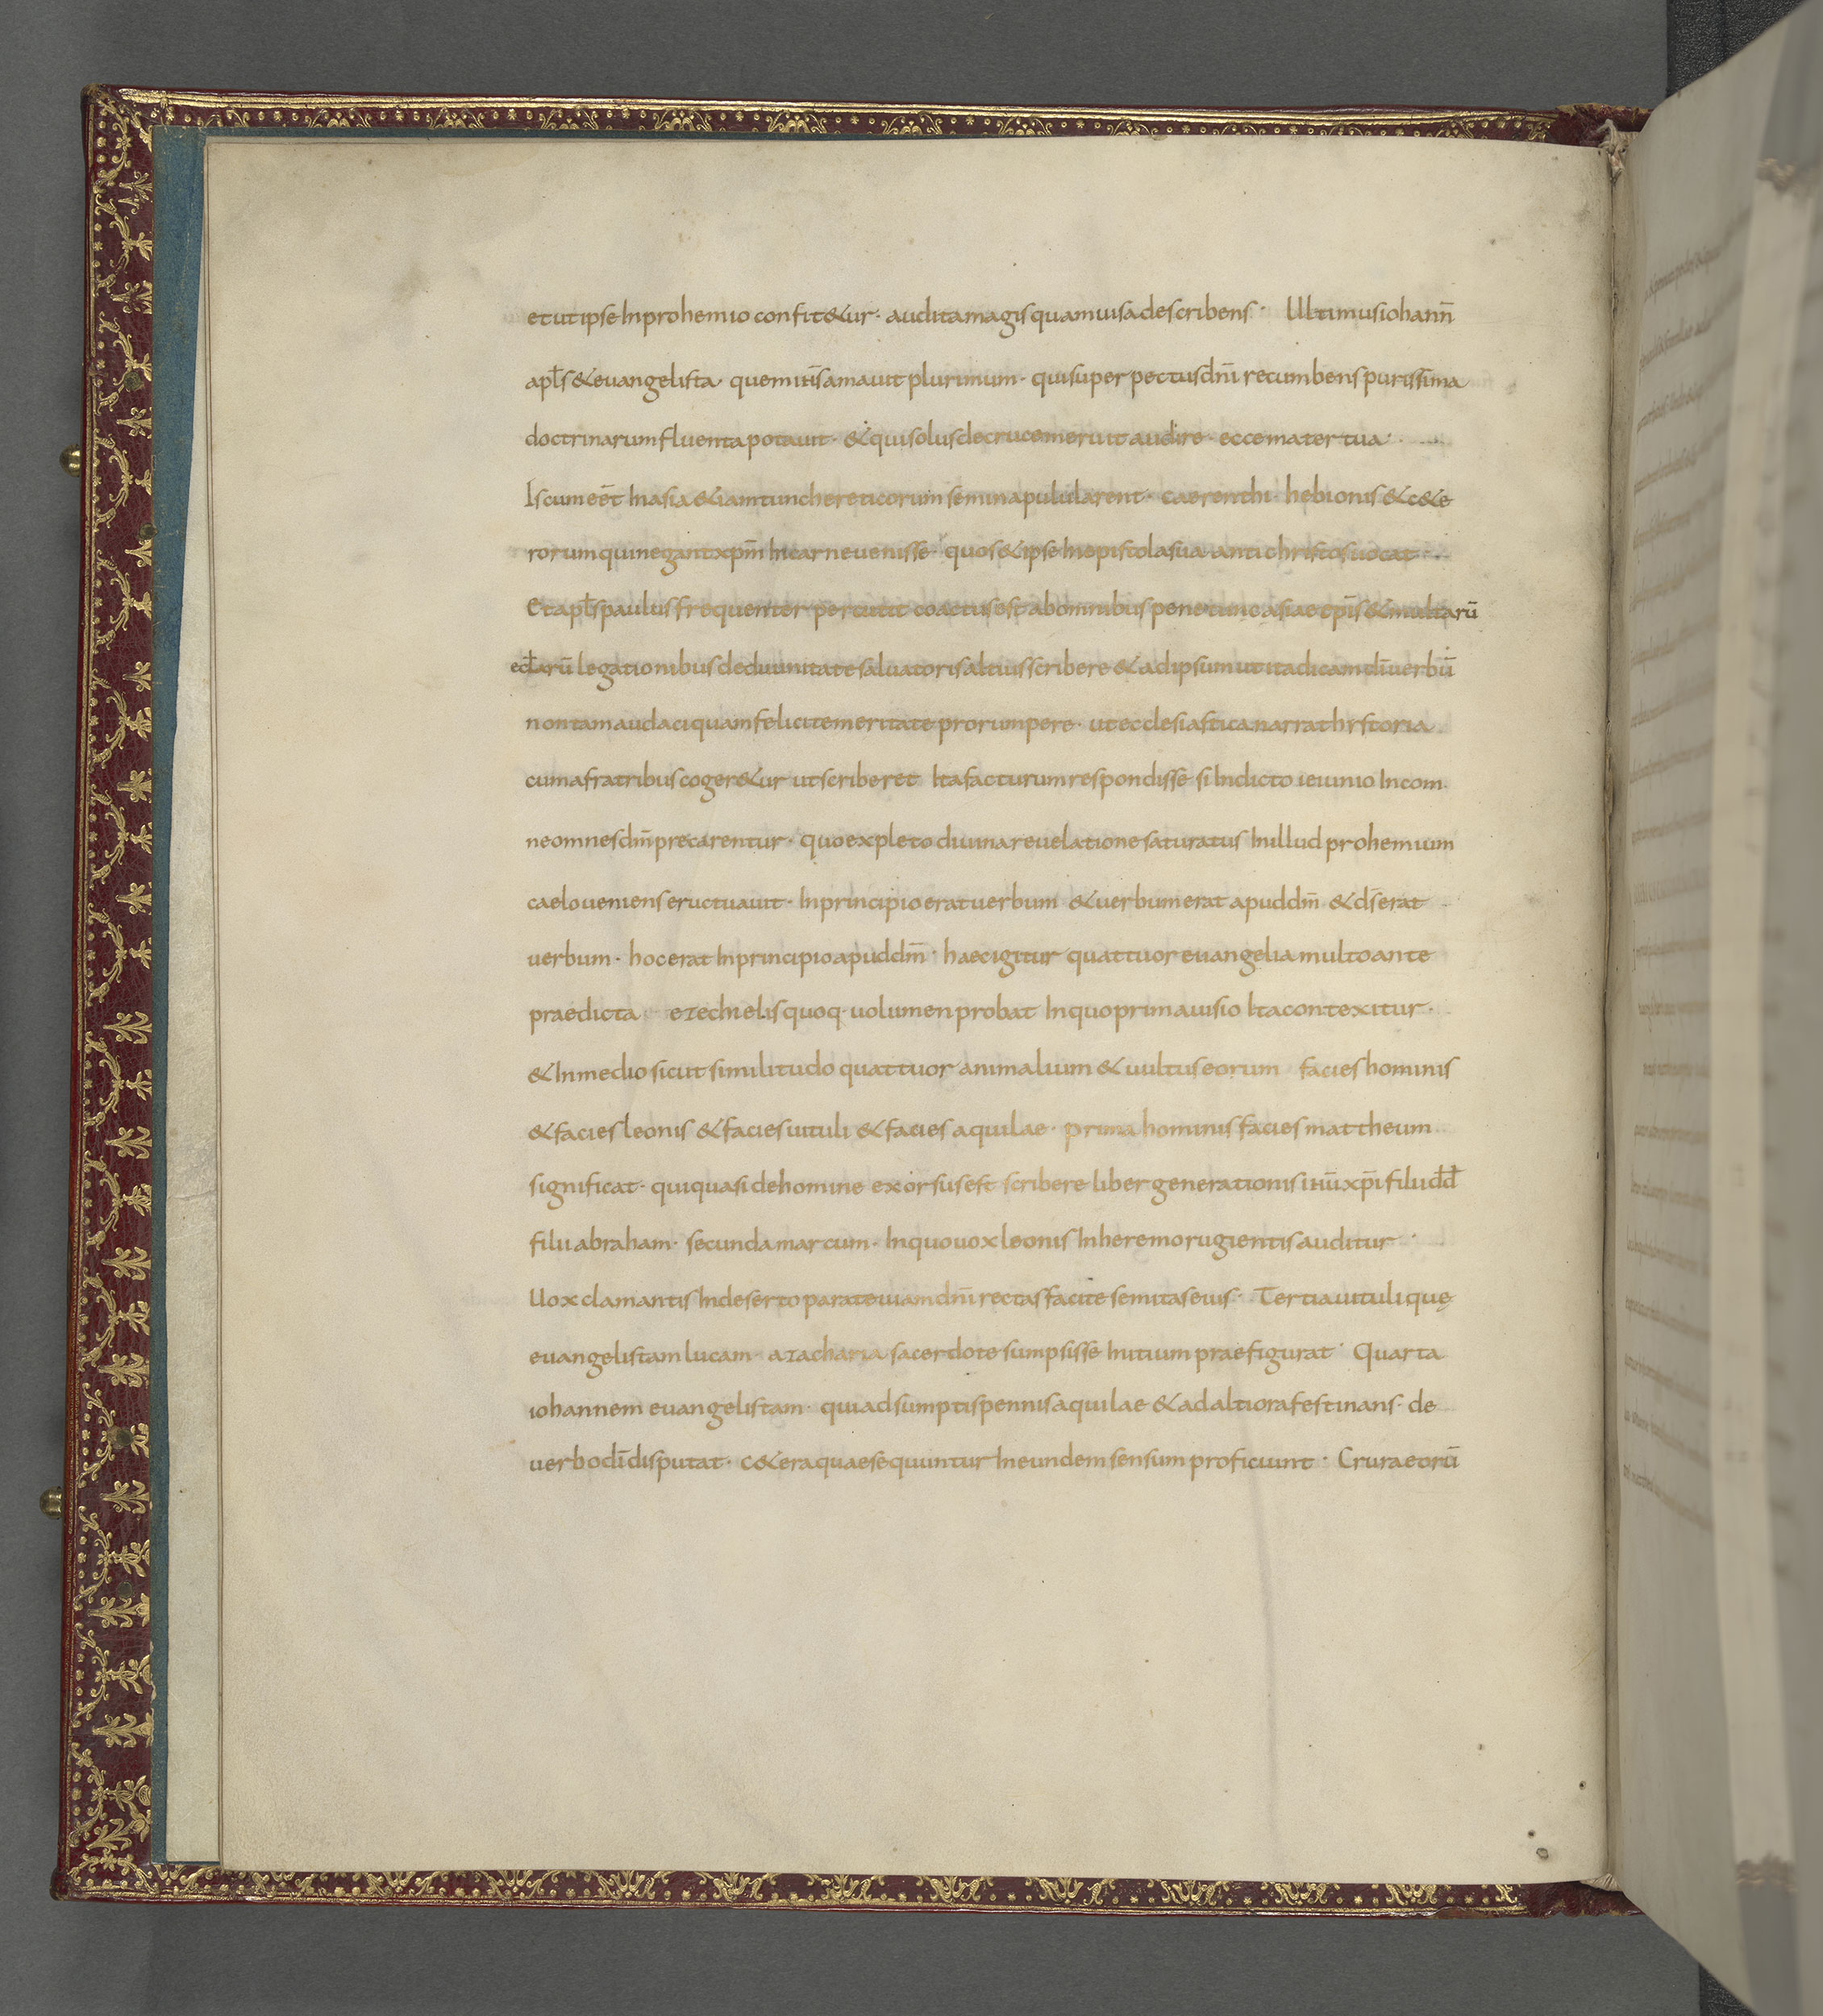 et ut ipse In prohemio confit&ur· audita magis quam uisa describens· Ultimus iohann̄
apl̄s & euangelista· quem ih̄s amauit plurimum· qui super pectus dn̄i recumbens purissima
doctrinarum fluenta potauit· & qui solus de cruce meruit audire· ecce mater tua·
Is cum eēt In asia & iam tunc hereticorum semina pulularent· caerenthi· hebionis & c&e
rorum qui negant xpm̄ In carne uenisse· quos & ipse In epistola sua antichristos uocat·
Et apl̄s paulus frequenter percutit coactus est ab omnibus pene tunc asiae ep̄is & multarū
ecl̄arū legationibus de diuinitate saluatoris altius scribere & ad ipsum ut ita dicam dī uerbū
non tam audaci quam felici temeritate prorumpere· ut ecclesiastica narrat historia
cum a fratribus coger&ur ut scriberet Ita facturum respondisse si Indicto ieiunio In com
ne omnes dm̄ precarentur· quo expleto diuina reuelatione saturatus In illud prohemium
caelo ueniens eructuauit· In principio erat uerbum & uerbum erat apud dm̄ & ds̄ erat
uerbum· hoc erat In principio apud dm̄· haec igitur quattuor euangelia multo ante
praedicta ezechielis quoq· uolumen probat In quo prima uisio Ita contexitur·
& In medio sicut similitudo quattuor animalium & uultus eorum facies hominis
& facies leonis & facies uituli & facies aquilae· prima hominis facies mattheum
significat· qui quasi de homine exorsus est scribere liber generationis ihū xpī filii dd̄
filii abraham· secunda marcum· In quo uox leonis In heremo rugientis auditur·
Uox clamantis In deserto parate uiam dn̄i rectas facite semitas eius· Tertia uituli quę
euangelistam lucam· a zacharia sacerdote sumpsisse Initium praefigurat· Quarta
iohannem euangelistam· qui adsumptis pennis aquilae & ad altiora festinans· de
uerbo dī disputat· c&era quae sequuntur In eundem sensum proficiunt· Crura eorū